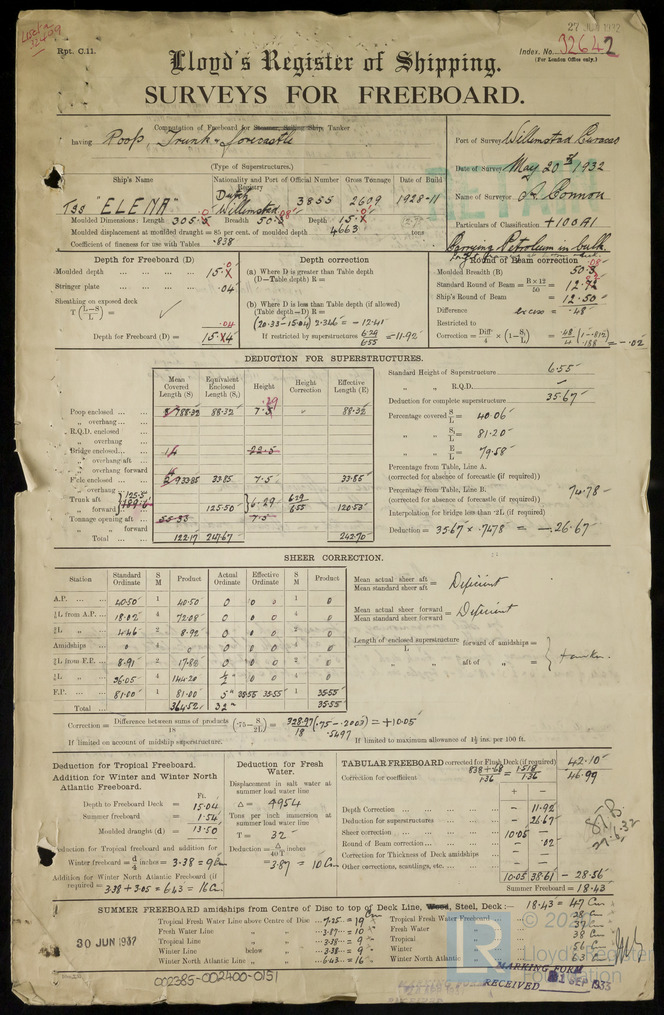 27 JUN 1932
Rpt. C.11.
Index. No. 32642
(For London Office only.)
Lloyd's Register of Shipping.
SURVEYS FOR FREEBOARD.
Computation of Freeboard for Steamer, Sailing Ship, Tanker
having Poop, Trunk & forecastle
(Type of Superstructures.)
Port of Survey Willemstad Curacao
Date of Survey May 20th 1932
Name of Surveyor A. Connon
Particulars of Classification +100A1
Carrying Petroleum in bulk.
Ship's Name
Nationality and Port of Registry
Official Number
Gross Tonnage
Date of Build
TSS "ELENA"
Dutch
Willemstad
3855
2609
1928-11
Moulded Dimensions: Length 305.5 Breadth 50. Depth 15.
Moulded displacement at moulded draught = 85 per cent. of moulded depth 4663 tons
Coefficient of fineness for use with Tables .838
Depth for Freeboard (D)
Moulded depth ... 15.
Stringer plate ... .04
Sheathing on exposed deck
T (L-S/L) =
Depth for Freeboard (D) = 15.04
Depth correction
(a) Where D is greater than Table depth
(D—Table depth) R =
(b) Where D is less than Table depth (if allowed)
(Table depth—D) R =
(20.33-15.04) 2.346 = -12.41
If restricted by superstructures 6.29/6.55 = 11.92
Round of Beam correction
Moulded Breadth (B) 50.
Standard Round of Beam = B×12/50 = 12.
Ship's Round of Beam = 12.50
Difference excess = .48
Restricted to
Correction = Diff/4 × (1-S₁/L) = .48/4 (1-.812) .188 = -.02
DEDUCTION FOR SUPERSTRUCTURES.
Mean Covered Length (S)
Equivalent Enclosed Length (S₁)
Height
Height Correction
Effective Length (E)
Poop enclosed ... 88.32 88.32 7.5 88.32
„ overhang ...
R.Q.D. enclosed
„ overhang
Bridge enclosed ... 22.5
„ overhang aft ...
„ overhang forward
F'cle enclosed ... 33.85 33.85 7.5 33.85
„ overhang
Trunk aft 125.5
„ forward 125.50 6.29 6.29/6.55 120.53
Tonnage opening aft 55.33 7.5
„ „ forward
Total ... 122.17 247.67 242.70
Standard Height of Superstructure 6.55
„ „ R.Q.D.
Deduction for complete superstructure 35.67
Percentage covered S/L = 40.06
„ „ S₁/L = 81.20
„ „ E/L = 79.58
Percentage from Table, Line A.
(corrected for absence of forecastle (if required))
Percentage from Table, Line B. 74.78
(corrected for absence of forecastle (if required))
Interpolation for bridge less than .2L (if required)
Deduction = 35.67 × .7478 = -26.67
SHEER CORRECTION.
Station
Standard Ordinate
S M
Product
Actual Ordinate
Effective Ordinate
S M
Product
A.P. ... 40.50 1 40.50 0 0 0 1 0
⅙L from A.P. ... 18.02 4 72.08 0 0 0 4 0
⅓L „ 4.46 2 8.92 0 0 0 2 0
Amidships ... 0 4 0 0 0 0 4 0
⅓L from F.P. ... 8.91 2 17.82 0 0 0 2 0
⅙L „ 36.05 4 144.20 0 0 4 0
F.P. ... 81.00 1 81.00 5" 35.55 35.55 1 35.55
Total ... 364.52 32" 35.55
Mean actual sheer aft / Mean standard sheer aft = Deficient
Mean actual sheer forward / Mean standard sheer forward = Deficient
Length of enclosed superstructure / L forward of amidships =
„ „ aft of „ =
tanker.
Correction = Difference between sums of products / 18 (.75 - S/2L) = 328.97/18 (.75 - .2003) = +10.05
.5497
If limited on account of midship superstructure.
If limited to maximum allowance of 1½ ins. per 100 ft.
Deduction for Tropical Freeboard.
Addition for Winter and Winter North Atlantic Freeboard.
Ft.
Depth to Freeboard Deck = 15.04
Summer freeboard = 1.54
Moulded draught (d) = 13.50
Deduction for Tropical freeboard and addition for
Winter freeboard = d/4 inches = 3.38 = 9 Cm
Addition for Winter North Atlantic Freeboard (if
required) = 3.38 + 3.05 = 6.43 = 16 Cm
Deduction for Fresh Water.
Displacement in salt water at summer load water line
Δ = 4954
Tons per inch immersion at summer load water line
T = 32
Deduction = Δ/40T inches
= 3.87 = 10 Cm
TABULAR FREEBOARD corrected for Flush Deck (if required) 42.10
Correction for coefficient .838+.68/1.36 = 1.518/1.36 46.99
+ −
Depth Correction ... — 11.92
Deduction for superstructures ... — 26.67
Sheer correction ... 10.05 —
Round of Beam correction ... — .02
Correction for Thickness of Deck amidships — —
Other corrections, scantlings, etc. ... — —
10.05 38.61 - 28.56
Summer Freeboard = 18.43
27.6.32
SUMMER FREEBOARD amidships from Centre of Disc to top of Deck Line, Wood, Steel, Deck :— 18.43 = 47 Cm
Tropical Fresh Water Line above Centre of Disc ... 7.25 = 19 Cm
Fresh Water Line „ „ ... 3.87 = 10 "
Tropical Line „ „ ... 3.38 = 9 "
Winter Line below „ ... 3.38 = 9 "
Winter North Atlantic Line „ „ ... 6.43 = 16 "
Tropical Fresh Water Freeboard ... 28 Cm
Fresh Water „ 37 Cm
Tropical „ 38 Cm
Winter „ 56 Cm
Winter North Atlantic „ 63 Cm
30 JUN 1932
002385-002400-0151
MARKING FORM
RECEIVED 1 SEP 1933
LR
Lloyd's Register
Foundation